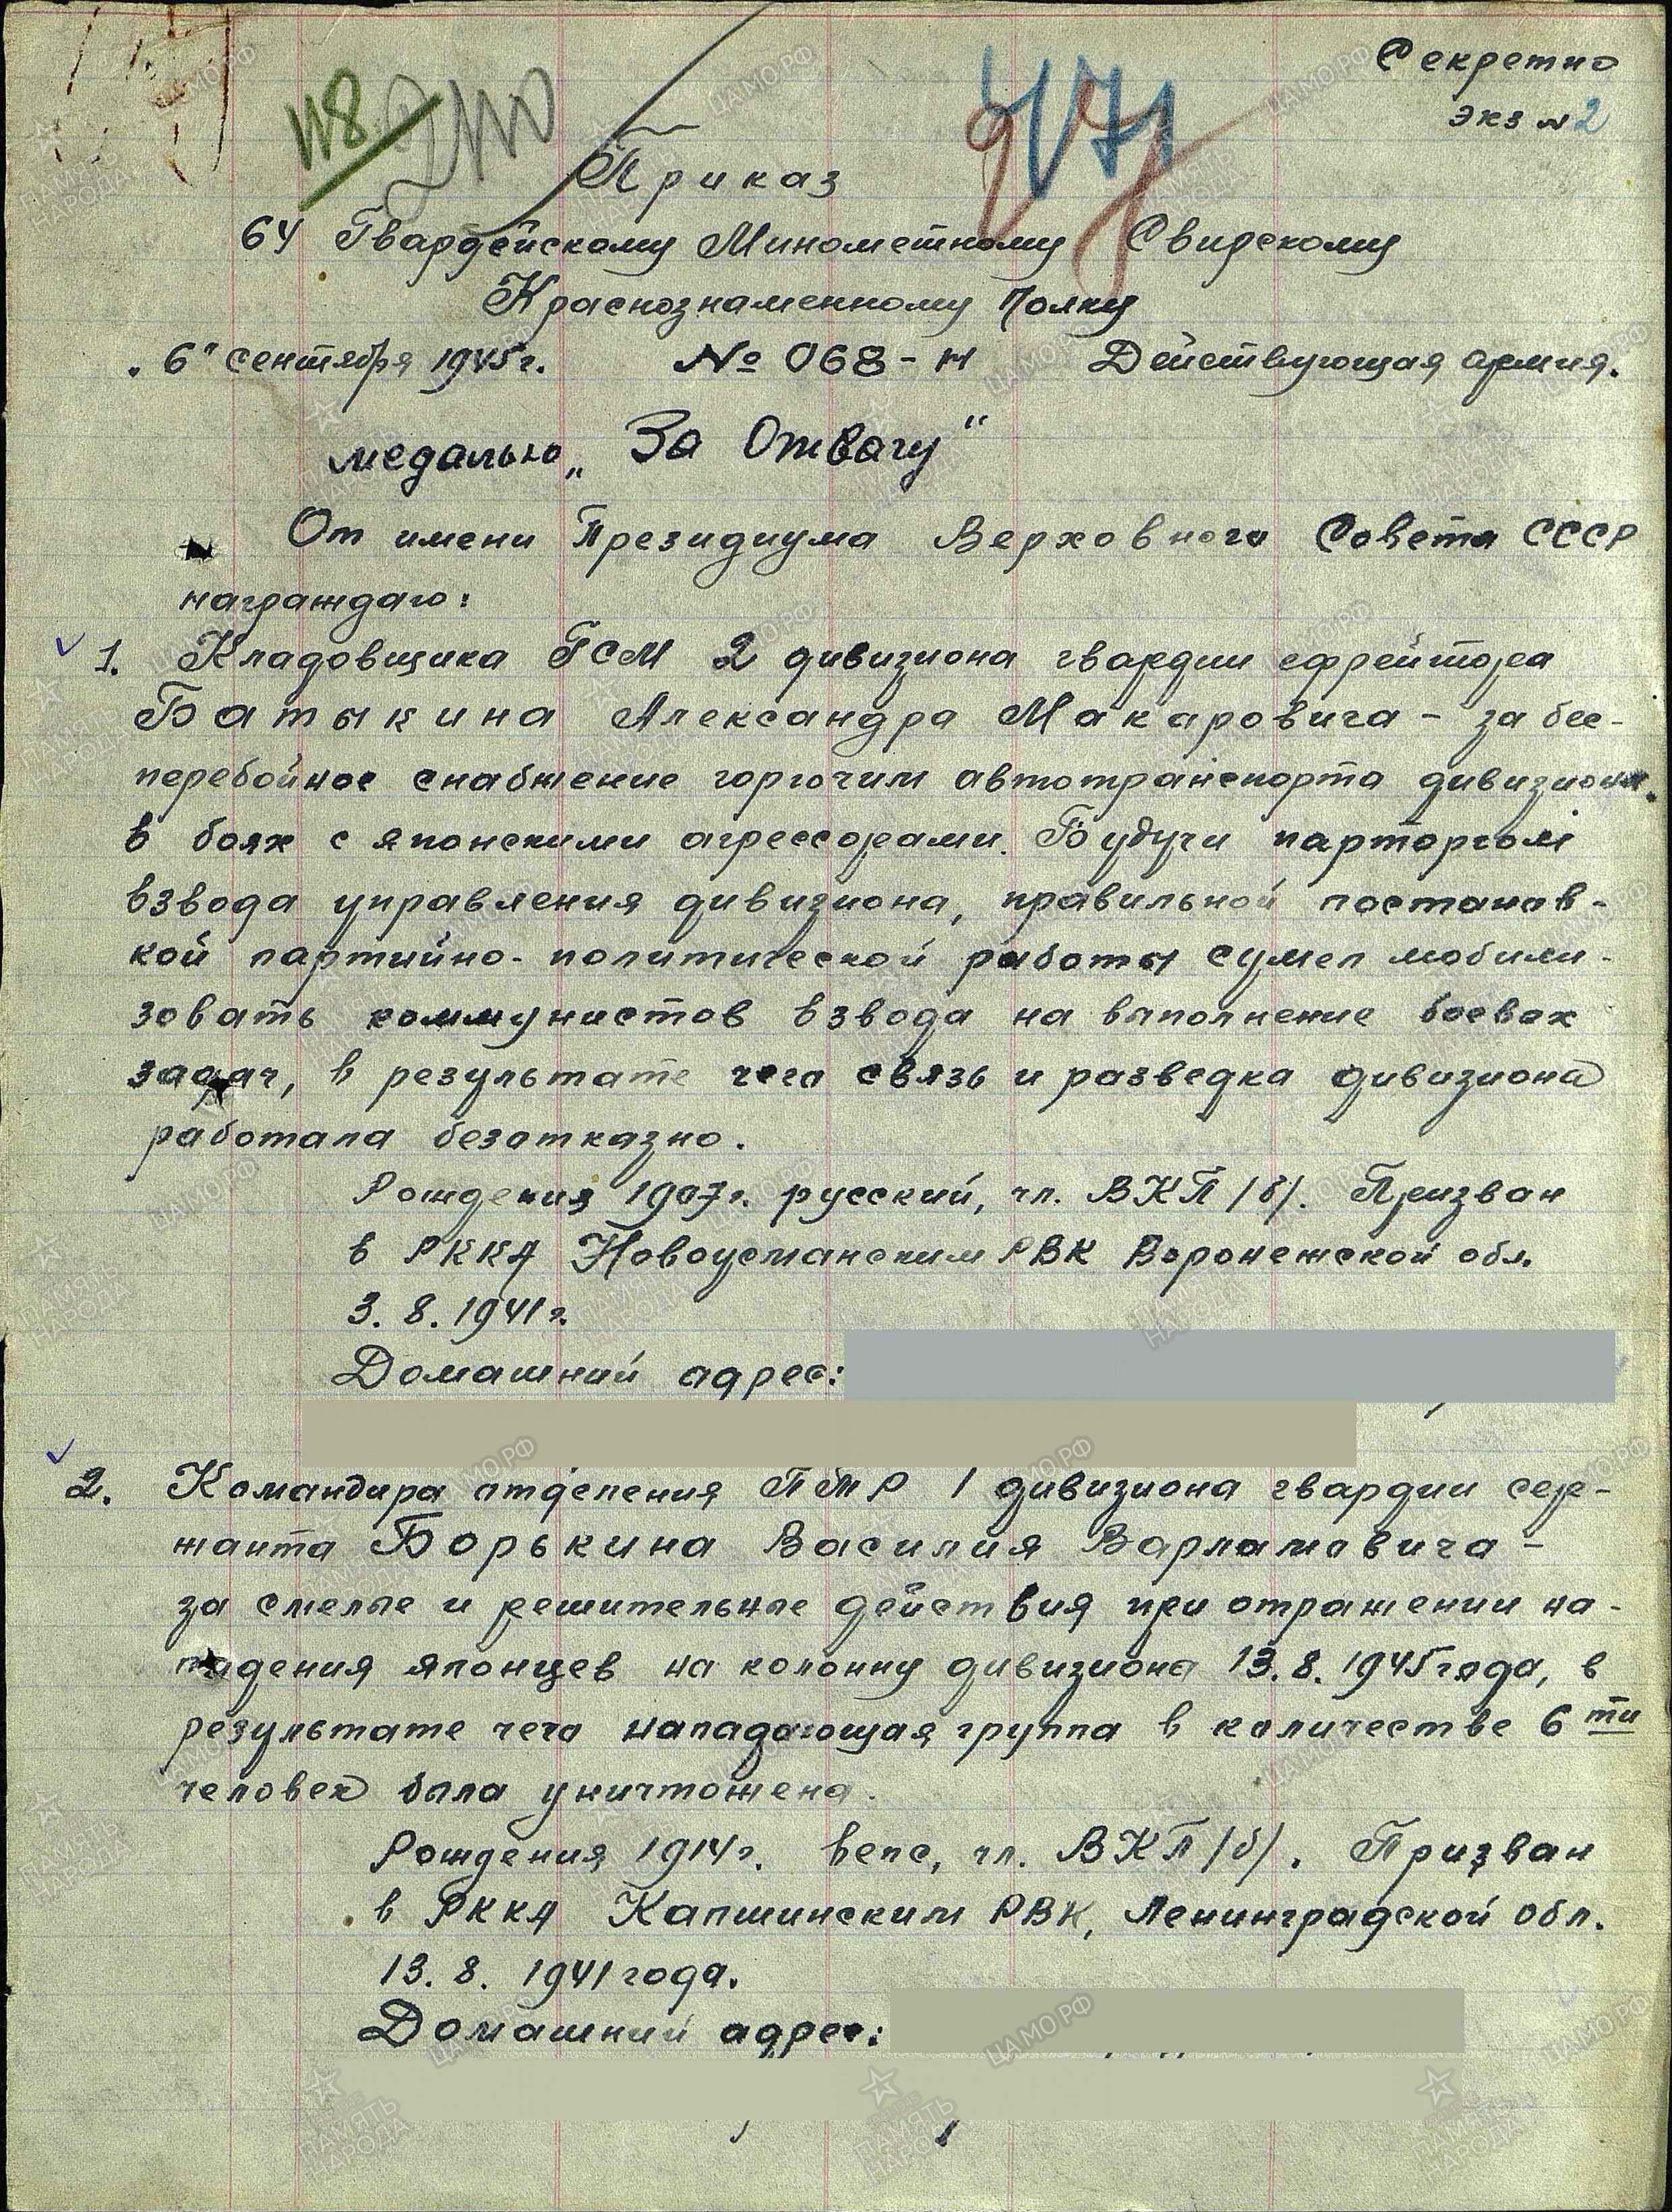 Секретно
экз № 2
118
Приказ
64 Гвардейскому Минометному Свирскому
Краснознаменному полку
„6" сентября 1945 г. № 068-н Действующая армия.
медалью „За Отвагу"
От имени Президиума Верховного Совета СССР
награждаю:
1. Кладовщика ГСМ 2 дивизиона гвардии ефрейтора
Батыкина Александра Макаровича - за бес-
перебойное снабжение горючим автотранспорта дивизиона
в боях с японскими агрессорами. Будучи парторгом
взвода управления дивизиона, правильной постанов-
кой партийно-политической работы сумел мобили-
зовать коммунистов взвода на выполнение боевых
задач, в результате чего связь и разведка дивизиона
работала безотказно.
Рождения 1907 г. русский, чл. ВКП/б/. Призван
в РККА Новоусманским РВК Воронежской обл.
3. 8. 1941 г.
Домашний адрес:
2. Командира отделения ПТР 1 дивизиона гвардии сер-
жанта Борькина Василия Варламовича -
за смелые и решительные действия при отражении на-
падения японцев на колонну дивизиона 13.8.1945 года, в
результате чего нападающая группа в количестве 6 ти
человек была уничтожена.
Рождения 1914 г. вепс, чл. ВКП/б/. Призван
в РККА Капшинским РВК, Ленинградской обл.
13. 8. 1941 года.
Домашний адрес:
ПАМЯТЬ НАРОДА
ЦАМО.РФ